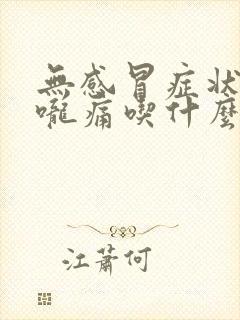 無感冒症狀
嚨痛喫什麼
江蕭何